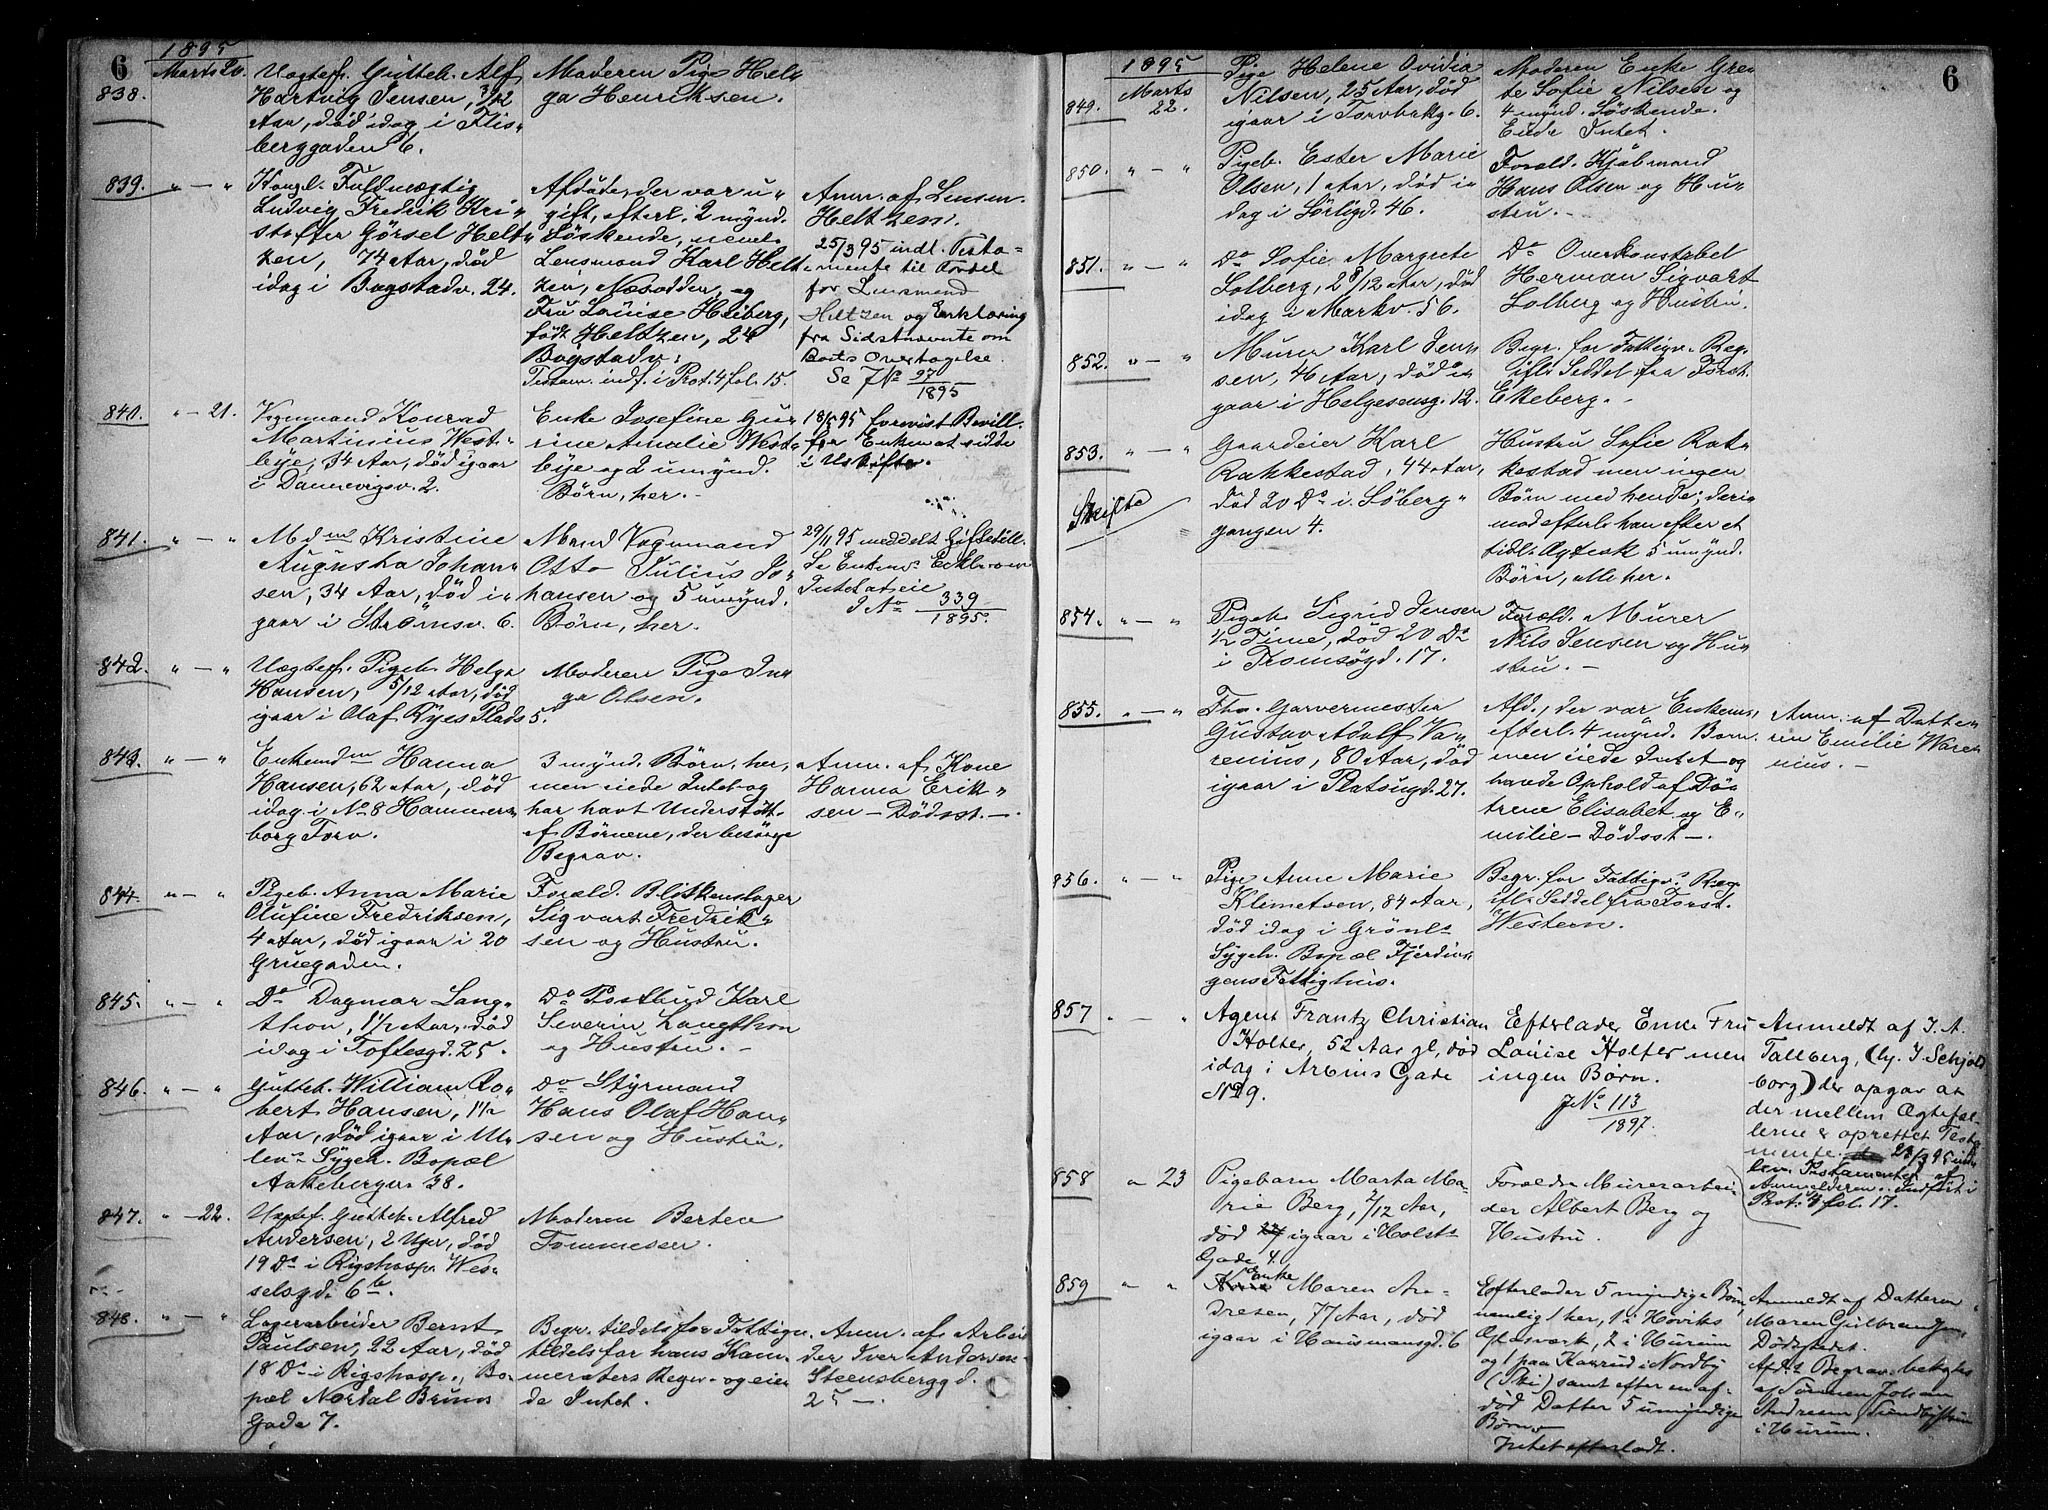 6
1895
Marts 20.
838.
Uægtef. Gutteb. Alf
Hartvig Jensen, 3/12
Aar, død idag i Flis-
berggaden 6.
Moderen Pige Hel-
ga Henriksen.
839. " — "
Kongel. Fuldmægtig
Ludvig Fredrik Kri-
stoffer Görsel Helt-
zen, 74 Aar, død
idag i Bogstadv. 24.
Afdøde, der var u-
gift, efterl. 2 mynd.
Söskende, nemlig
Lensmand Karl Helt-
zen, Næsodden, og
Fru Louise Heiberg,
født Heltzen, 24
Bogstadv.
Testam. indf. i Prot. 4 fol. 15.
Anm. af Lensm.
Heltzen.
25/3 95 indl. Testa-
mente til Fordel
for Lensmand
Heltzen og Erklæring
fra Sidstnævnte om
Boets Overtagelse.
Se JNo 97
1895
840. " — 21.
Vognmand Konrad
Martinius West-
bye, 34 Aar, død igaar
i Dannevigsv. 2.
Enke Josefine Gu-
rine Amalie West-
bye og 2 umynd.
Børn, her. -
18/5 95 forevist Bevill.
for Enken at sidde
i Uskifte.
841. " — "
Mdm Kristine
Augusta Johan-
sen, 34 Aar, død i-
gaar i Strømsv. 6.
Mand Vognmand
Otto Julius Jo-
hansen og 5 umynd.
Børn, her.
29/11 95 meddelt Giftetill.
Se Enkem. Erkl. om
Intet at eie
JNo 339
1895.
842. " — "
Uægtef. Pigeb. Helga
Hansen, 5/12 Aar, død
igaar i Olaf Ryes Plads 5.
Moderen Pige In-
ga Olsen.
843. " — "
Enkemdm Hanna
Hansen, 62 Aar, død
idag i No 8 Hammers-
borg Torv.
3 mynd. Børn, her,
men eiede Intet og
har havt Understøtt.
af Børnene, der besørge
Begrav.
Anm. af Kone
Hanna Erik-
sen — Dødsst. —.
844. " — "
Pigeb. Anna Marie
Olufine Fredriksen,
4 Aar, død igaar i 20
Gruegaden.
Foræld. Blikkenslager
Sigvart Fredrik-
sen og Hustru.
845. " — "
Do Dagmar Lang-
thon, 1 1/2 Aar, død
idag i Toftesgd. 25.
Do Postbud Karl
Severin Langthon
og Hustru. -
846. " — "
Gutteb. William Ro-
bert Hansen, 1 1/2
Aar, død igaar i Ul-
lev. Sygeh. Bopæl
Aakebergv. 38.
Do Styrmand
Hans Olaf Han-
sen og Hustru.
847. " — 22.
Uægtef. Gutteb. Alfred
Andersen, 2 Uger, død
19 Ds i Rigshosp. Wes-
selsgd. 6 b.
Moderen Bertea
Tommessen.
848. " — "
Lagerarbeider Bernt
Paulsen, 22 Aar, død
18 Ds i Rigshosp., Bo-
pæl Nordal Bruns
Gade 7.
Begr. tildels for Fattigv.
tildels for hans Kam-
meraters Regn. og eie-
de Intet.
Anm. af Arbei-
der Iver Andersen -
Steensberggd.
25 —.
6
1895
Marts
22.
849.
Pige Helene Ovidia
Nilsen, 25 Aar, død
igaar i Torvbakg. 6.
Moderen Enke Gre-
te Sofie Nilsen og
4 mynd. Söskende.
Eiede Intet.
850. " — "
Pigeb. Ester Marie
Olsen, 1 Aar, død i-
dag i Sörligd. 46.
Foræld. Kjøbmand
Hans Olsen og Hu-
stru. -
851. " — "
Do Sofie Margrete
Solberg, 2 8/12 Aar, død
idag i Markv. 56.
Do Overkonstabel
Herman Sigvart
Solberg og Hustru.
852. " — "
Murer Karl Jen-
sen, 46 Aar, død i-
gaar i Helgesensg. 12.
Begr. for Fattigv. Reg.
ifl. Seddel fra Forst.
Ekeberg. -
853. " — "
Skifte
Gaardeier Karl
Rakkestad, 44 Aar,
død 20 Ds i Söberg-
gangen 4.
Hustru Sofie Rak-
kestad men ingen
Børn med hende; deri-
mod efterl. han efter et
tidl. Ægtesk. 5 umynd.
Børn, alle her.
854. " — "
Pigeb. Sigrid Jensen
1/2 Time, død 20 Ds
i Tromsøgd. 17.
Foræld. Murer
Nils Jensen og Hu-
stru. -
855. " — "
Fhv. Garvermester
Gustav Adolf Wa-
renius, 80 Aar, død
igaar i Platougd. 27.
Afd., der var Enkem.,
efterl. 4 mynd. Børn.
men eiede Intet og
havde Ophold af Dø-
trene Elisabet og E-
milie — Dødsst. —.
Anm. af Datte-
ren Emilie Ware-
nius. -
856. " — "
Pige Anne Marie
Klemetsen, 84 Aar,
død idag i Grønl.
Sygeh. Bopæl Fjerdin-
gens Fattighus.
Begr. for Fattigv. Reg.
ifl. Seddel fra Forst.
Western.
857 " — "
Agent Frantz Christian
Holter, 52 Aar gl, død
idag i Arbins Gade
No 9.
Efterlader Enke Fru
Louise Holter men
ingen Børn.
JNo 113
1897.
Anmeldt af J. A.
Tallberg, (by. J. Schjold-
borg) der opgav at
der mellem Ægtefæl-
lerne er oprettet Testa-
mente. 23/3 95 ind-
lev. Testamentet af
Anmelderen. Indført i
Prot. 4 fol. 17.
858 " 23
Pigebarn Marta Ma-
rie Berg, 2/12 Aar,
død igaar i Holsts
Gade 4.
Forældre Murerarbei-
der Albert Berg og
Hustru.
859 " "
Enke Maren An-
dresen, 77 Aar, død
igaar i Hausmansgd. 6
Efterlader 5 myndige Børn
nemlig 1 her, 1 i Høviks
Glasværk, 2 i Hurum
og 1 paa Kaxrud i Nordby
(Ski) samt efter en af-
død Datter 5 umyndige
Børn.
Intet efterladt.
Anmeldt af Datteren
Maren Gulbrandsen,
Dødsstedet.
Afd.s Begrav. bekostes
af Sønnen Johan
Andresen, Sundbystrøm
i Hurum.